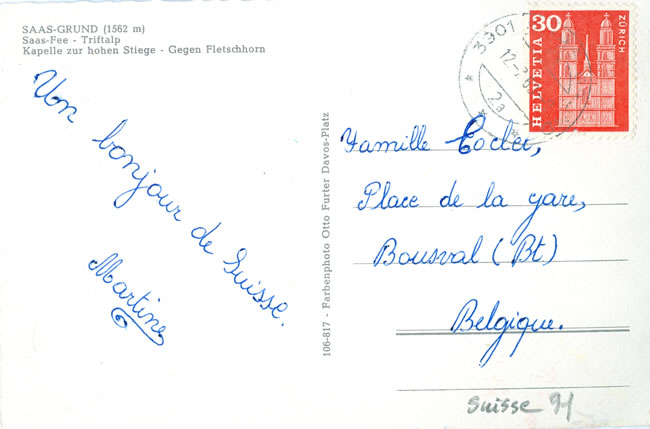 SAAS-GRUND (1562 m)
Saas-Fee - Triftalp
Kapelle zur hohen Stiege - Gegen Fletschhorn
Un bonjour de Suisse.
Martine
106-817 - Farbenphoto Otto Furter Davos-Platz
3901
12-
2a
30
HELVETIA
ZÜRICH
Famille
Place de la gare,
Bousval (Bt)
Belgique.
Suisse 91